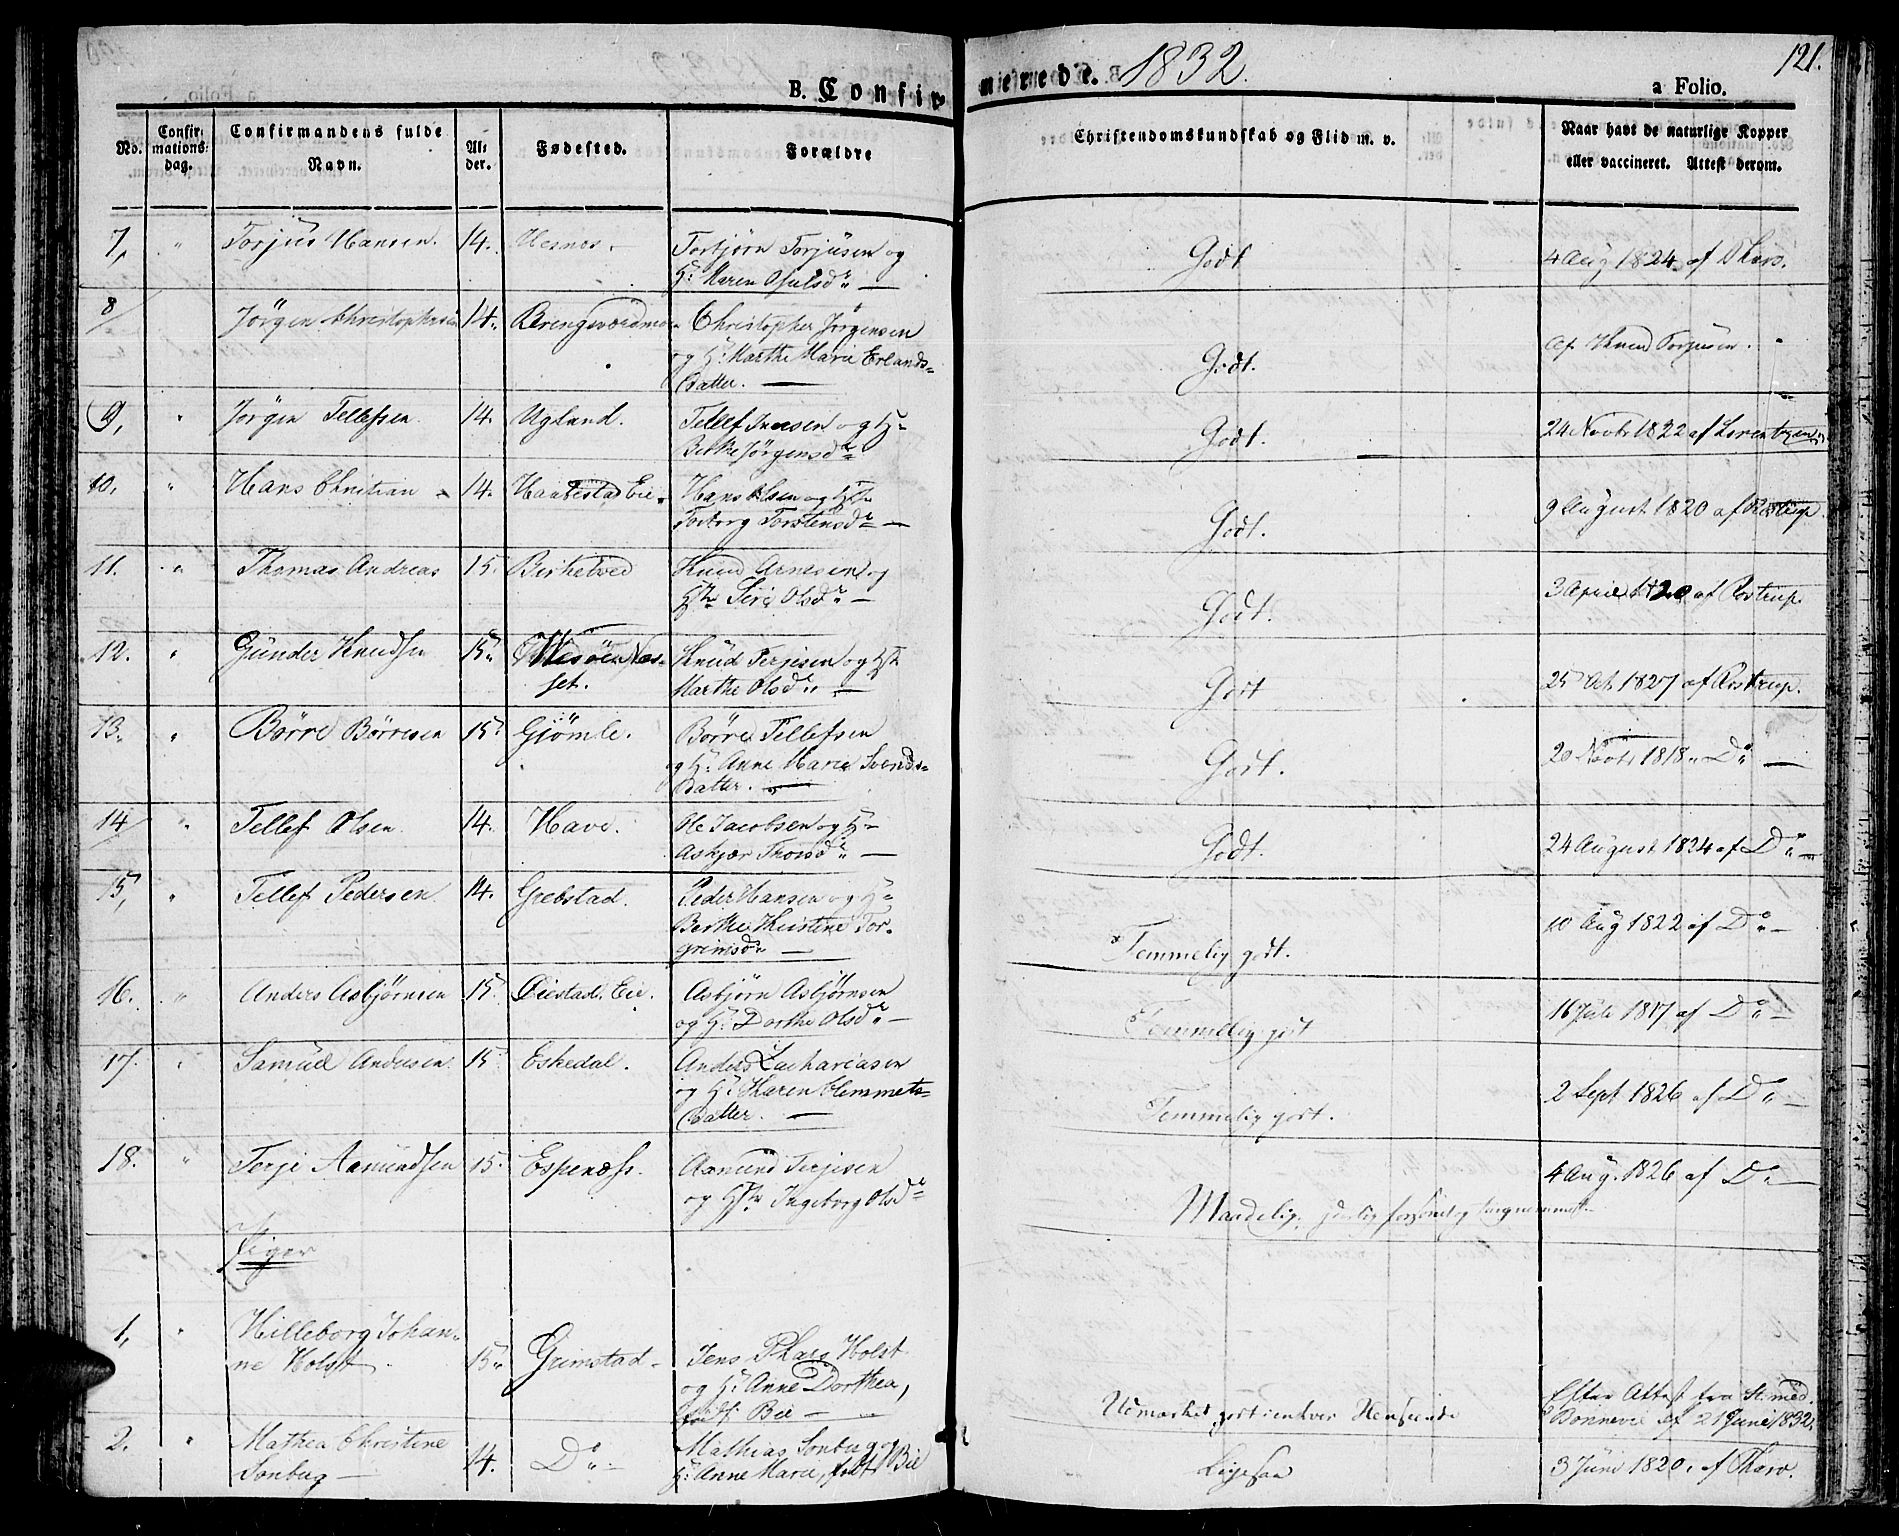 B. Confirmerede. 1832. 121.
a Folio.
No.
Confirmations-dag.
Confirmandens fulde Navn.
Alder.
Fødested.
Forældre
Christendomskundskab og Flid m. v.
Naar havt de naturlige Kopper
eller vaccineret. Attest derom.
7, " Torjus Hansen. 14. Hesnes. Torbjørn Torjusen og
H: Maren Osulsdr —
Godt 4 Aug 1824. af Tharo.
8/ Jörgen Christophersen 14. Christopher Jørgensen
og H: Marthe Marie Erlands-
datter. —
Godt. af Knud Torjusen.
9, " Jörgen Tellefsen 14. Ugland. Tellef Jensen og H-
Birthe Jörgensdr
Godt. 24 Novbr 1822 af Lorentzen
10, " Hans Christian 14. Haabestad Eie. Hans Olsen og Hst
Torborg Torstensdr —
Godt. 9 August 1820 af Rostrup.
11. " Thomas Andreas 15. Birketved Knud Arnesen og
Hstr Siri Olsdr —
Godt. 3 April 1820 af Rostrup.
12. " Gunder Knudsen 15. Nes-
set. Knud Terjesen og Hst
Marthe Olsdr —
Godt 25 Oct. 1827 af Rostrup.
13. " Børre Börresen 15. Gjömle. Börre Tellefsen
og H: Anne Marie Svends-
datter. —
Godt. 20 Novbr 1818. Do —
14/ " Tellef Olsen. 14. Have. Ole Jacobsen og H-
Askjær dr —
Godt. 24 August 1824 af Do —
15, " Tellef Pedersen 14. Grebstad. Peder Hansen og H-
Berthe Kirstine Tor-
grimsdr —
Temmelig godt. 10 Aug 1822 af Do —
16. " Anders Asbjørnsen 15. Øiestad. Eie. Asbjørn Asbjørnsen
og H: Dorthe Olsdr —
Temmelig godt 16 Juli 1817 af Do —
17. " Samuel Andersen 15. Eskedal. Anders Zachariasen
og H: Karen Clemmets-
datter. —
Temmelig godt. 2 Sept 1826 af Do —
18. " Terje Aamundsen 15. Espenæss. Aamund Terjesen
og Hstr Ingeborg Olsdr
Maadelig, tungnemmet. 4 Aug. 1826 af Do —
Piger
1, " Hilleborg Johan-
ne Holst 15. Grimstad. Jens Holst
og H: Anne Dorthea,
født Bie —
Udmærket godt i enhver Henseende Efter Attest fra St. med.
Bonnevie af 21 Juni 1832.
2. " Mathea Christine
Sonbug — 14. Do Mathias Sonbug og
H: Anne Marie, født Bie
Ligesaa 3 Juni 1820. af Tharo.